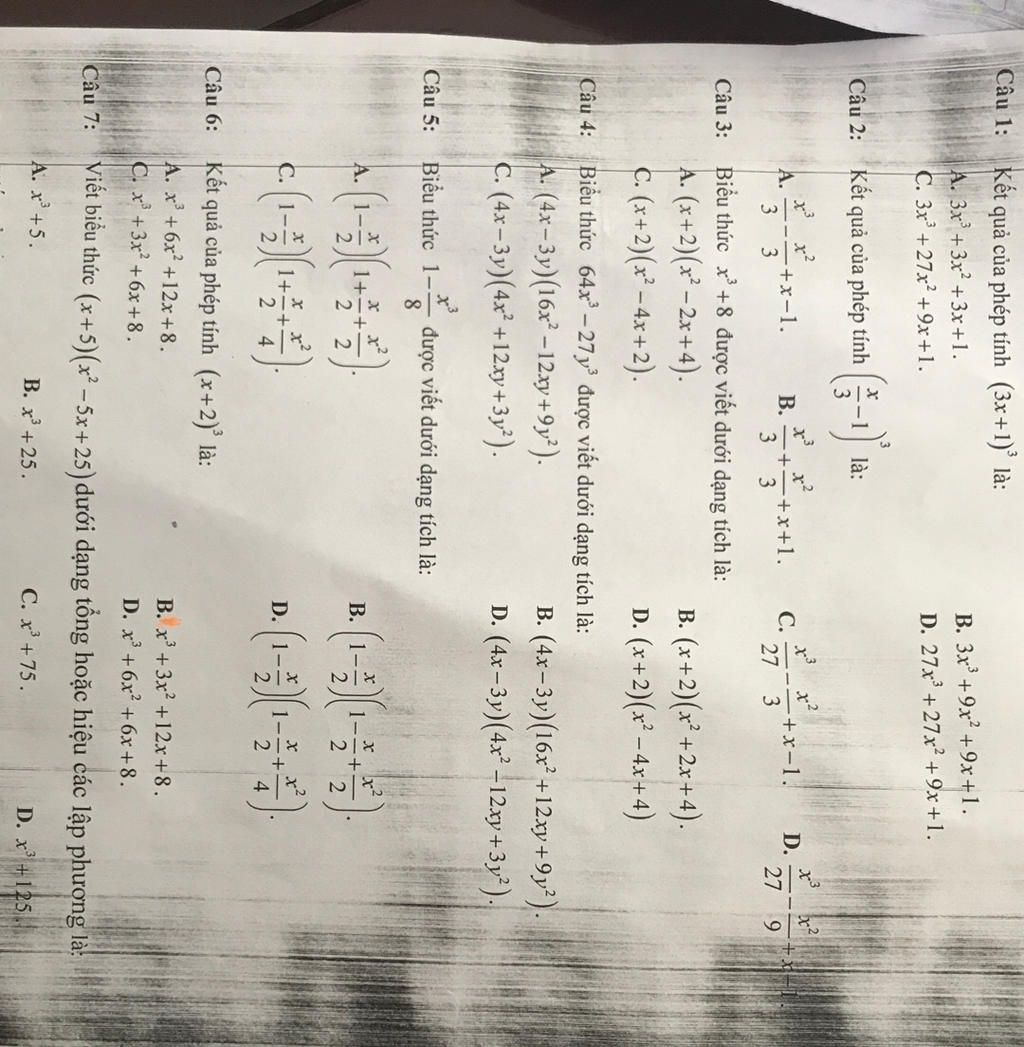 Câu 1: Kết quả của phép tính (3x+1)³ là:
A. 3x³+3x²+3x+1. B. 3x³+9x²+9x+1.
C. 3x³+27x²+9x+1. D. 27x³+27x²+9x+1.
Câu 2: Kết quả của phép tính (x/3−1)³ là:
A. x³/3−x²/3+x−1. B. x³/3+x²/3+x+1. C. x³/27−x²/3+x−1. D. x³/27−x²/9+x−1.
Câu 3: Biểu thức x³+8 được viết dưới dạng tích là:
A. (x+2)(x²−2x+4). B. (x+2)(x²+2x+4).
C. (x+2)(x²−4x+2). D. (x+2)(x²−4x+4)
Câu 4: Biểu thức 64x³−27y³ được viết dưới dạng tích là:
A. (4x−3y)(16x²−12xy+9y²). B. (4x−3y)(16x²+12xy+9y²).
C. (4x−3y)(4x²+12xy+3y²). D. (4x−3y)(4x²−12xy+3y²).
Câu 5: Biểu thức 1−x³/8 được viết dưới dạng tích là:
A. (1−x/2)(1+x/2+x²/2). B. (1−x/2)(1−x/2+x²/2).
C. (1−x/2)(1+x/2+x²/4). D. (1−x/2)(1−x/2+x²/4).
Câu 6: Kết quả của phép tính (x+2)³ là:
A. x³+6x²+12x+8. B. x³+3x²+12x+8.
C. x³+3x²+6x+8. D. x³+6x²+6x+8.
Câu 7: Viết biểu thức (x+5)(x²−5x+25) dưới dạng tổng hoặc hiệu các lập phương là:
A. x³+5. B. x³+25. C. x³+75. D. x³+125.